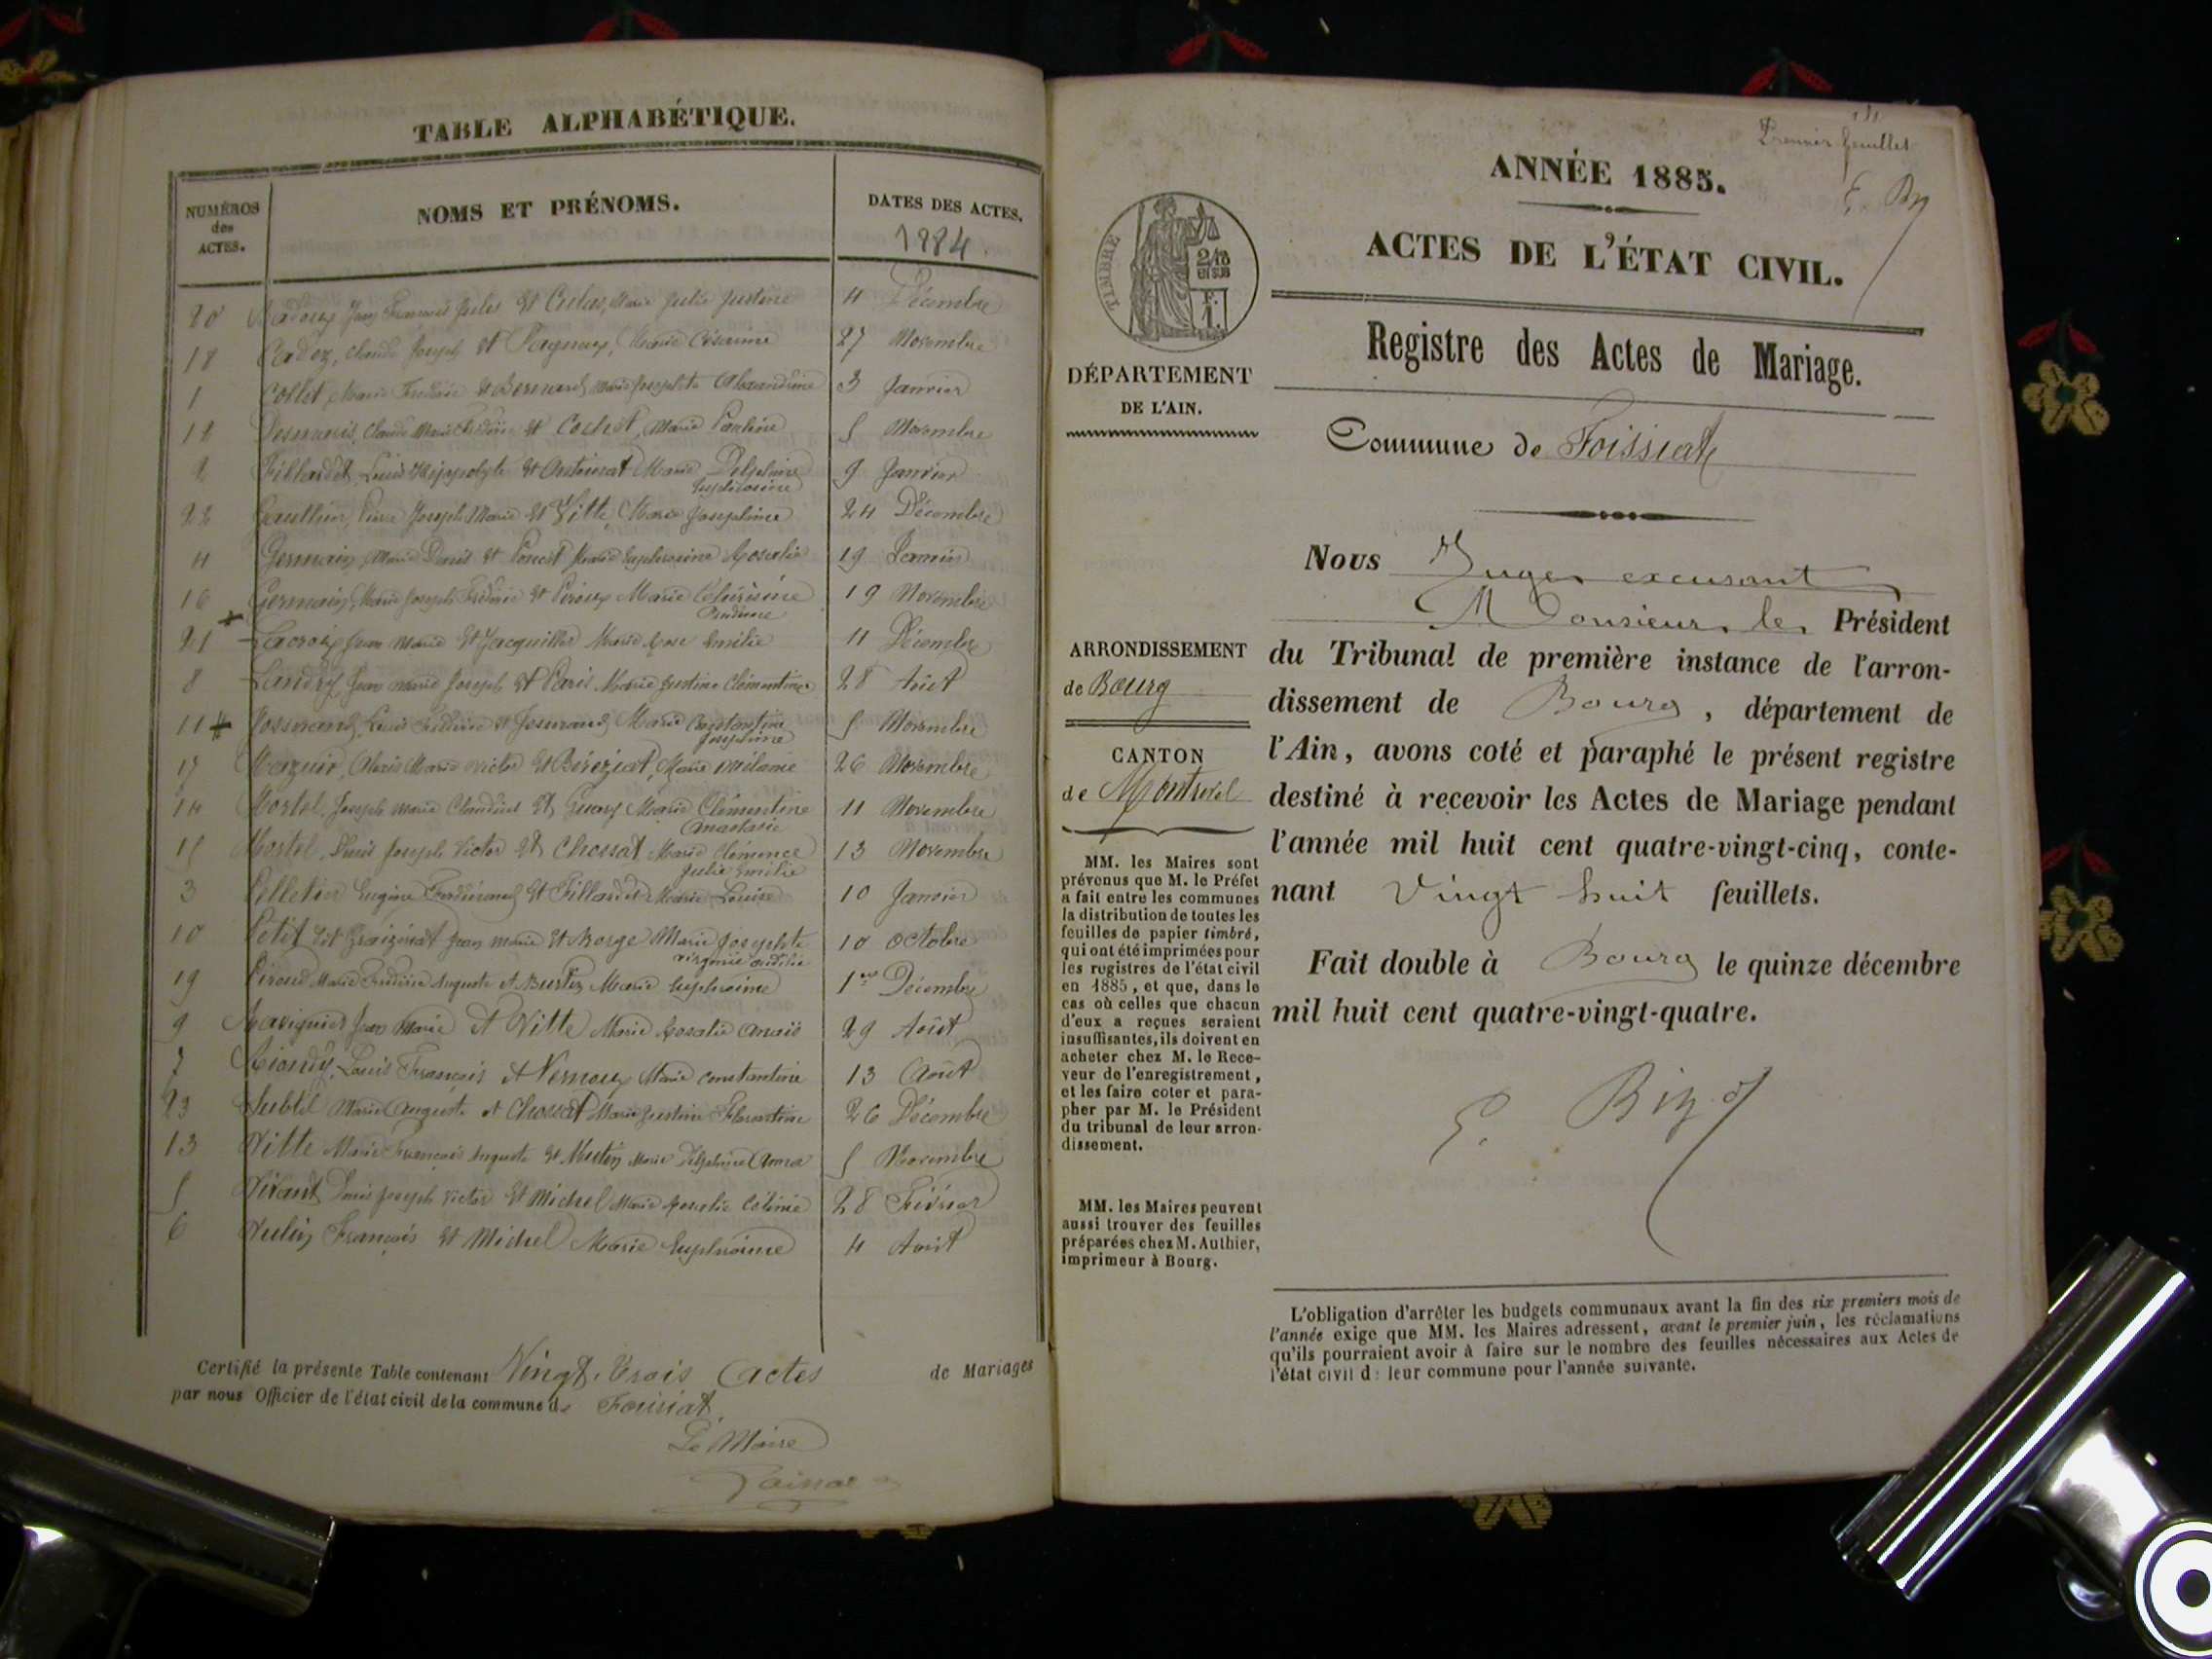 TABLE ALPHABÉTIQUE.
NUMÉROS
des
ACTES.
NOMS ET PRÉNOMS.
DATES DES ACTES.
1884.
20 Jean François Jules et Marie Julie Justine 4 Décembre
18 Cadoz, Claude Joseph et Pagneux, Marie Césarine 27 Novembre
1 Collet, Marie Frédéric et Bernard Marie Josephte Alexandrine 3 Janvier
12 Desmaris, Claude Marie Frédéric et Cochet, Marie Pauline 5 Novembre
2 Fillardet, Louis Hippolyte et Antoinat Marie Delphine 9 Janvier
Euphrosine
22 Gauthier, Pierre Joseph Marie et Vitte, Marie Joséphine 24 Décembre
4 Germain, Marie Denis et Poncet Marie Euphrosine Rosalie 19 Janvier
16 Germain, Marie Joseph Frédéric et Piroux Marie 19 Novembre
21 Lacroix Jean Marie et Jacquillet Marie Rose Emélie 11 Décembre
8 Landry Jean Marie Joseph et Paris Marie Justine Clémentine 28 Août
11 Josserand, Louis Frédéric et Josserand Marie Constantine 5 Novembre
Joséphine
17 Mazuir, Alexis Marie Victor et Béréziat, Marie Mélanie 26 Novembre
14 Mortel, Joseph Marie Claudius et Marie Clémentine 11 Novembre
Anastasie
15 Mortel, Denis Joseph Victor et Chossat Marie Clémence 13 Novembre
Julie Emélie
3 Pelletier Eugène Ferdinand et Fillardet Marie Louise 10 Janvier
10 Petit dit Jean Marie et Borge Marie Josephte 10 Octobre
Virginie
19 Piroud Marie Frédéric Auguste et Burtin Marie Euphrosine 1er Décembre
9 Ravignier Jean Marie et Vitte Marie Rosalie Anaïs 29 Août
7 Riondy, Louis François et Vernoux Marie Constantine 13 Août
23 Subtil Marie Auguste et Chossat Marie Justine Florentine 26 Décembre
13 Vitte Marie François Auguste et Mutin Marie Delphine Anna 5 Novembre
5 Vivant Denis Joseph Victor et Michel Marie Rosalie 28 Février
6 Vulin François et Michel Marie Euphrosine 4 Août
Certifié la présente Table contenant Vingt-trois Actes de Mariages
par nous Officier de l'état civil de la commune de Foissiat
Le Maire
Premier feuillet
ANNÉE 1885.
ACTES DE L'ÉTAT CIVIL.
TIMBRE
2/10
EN SUS
F.
1.
DÉPARTEMENT
DE L'AIN.
Registre des Actes de Mariage.
Commune de Foissiat
Nous Juge excusant
Monsieur le Président
du Tribunal de première instance de l'arron-
dissement de Bourg, département de
l'Ain, avons coté et paraphé le présent registre
destiné à recevoir les Actes de Mariage pendant
l'année mil huit cent quatre-vingt-cinq, conte-
nant Vingt huit feuillets.
Fait double à Bourg le quinze décembre
mil huit cent quatre-vingt-quatre.
ARRONDISSEMENT
de Bourg
CANTON
de Montrevel
MM. les Maires sont
prévenus que M. le Préfet
a fait entre les communes
la distribution de toutes les
feuilles de papier timbré,
qui ont été imprimées pour
les registres de l'état civil
en 1885, et que, dans le
cas où celles que chacun
d'eux a reçues seraient
insuffisantes, ils doivent en
acheter chez M. le Rece-
veur de l'enregistrement,
et les faire coter et para-
pher par M. le Président
du tribunal de leur arron-
dissement.
MM. les Maires peuvent
aussi trouver des feuilles
préparées chez M. Authier,
imprimeur à Bourg.
L'obligation d'arrêter les budgets communaux avant la fin des six premiers mois de
l'année exige que MM. les Maires adressent, avant le premier juin, les réclamations
qu'ils pourraient avoir à faire sur le nombre des feuilles nécessaires aux Actes de
l'état civil de leur commune pour l'année suivante.